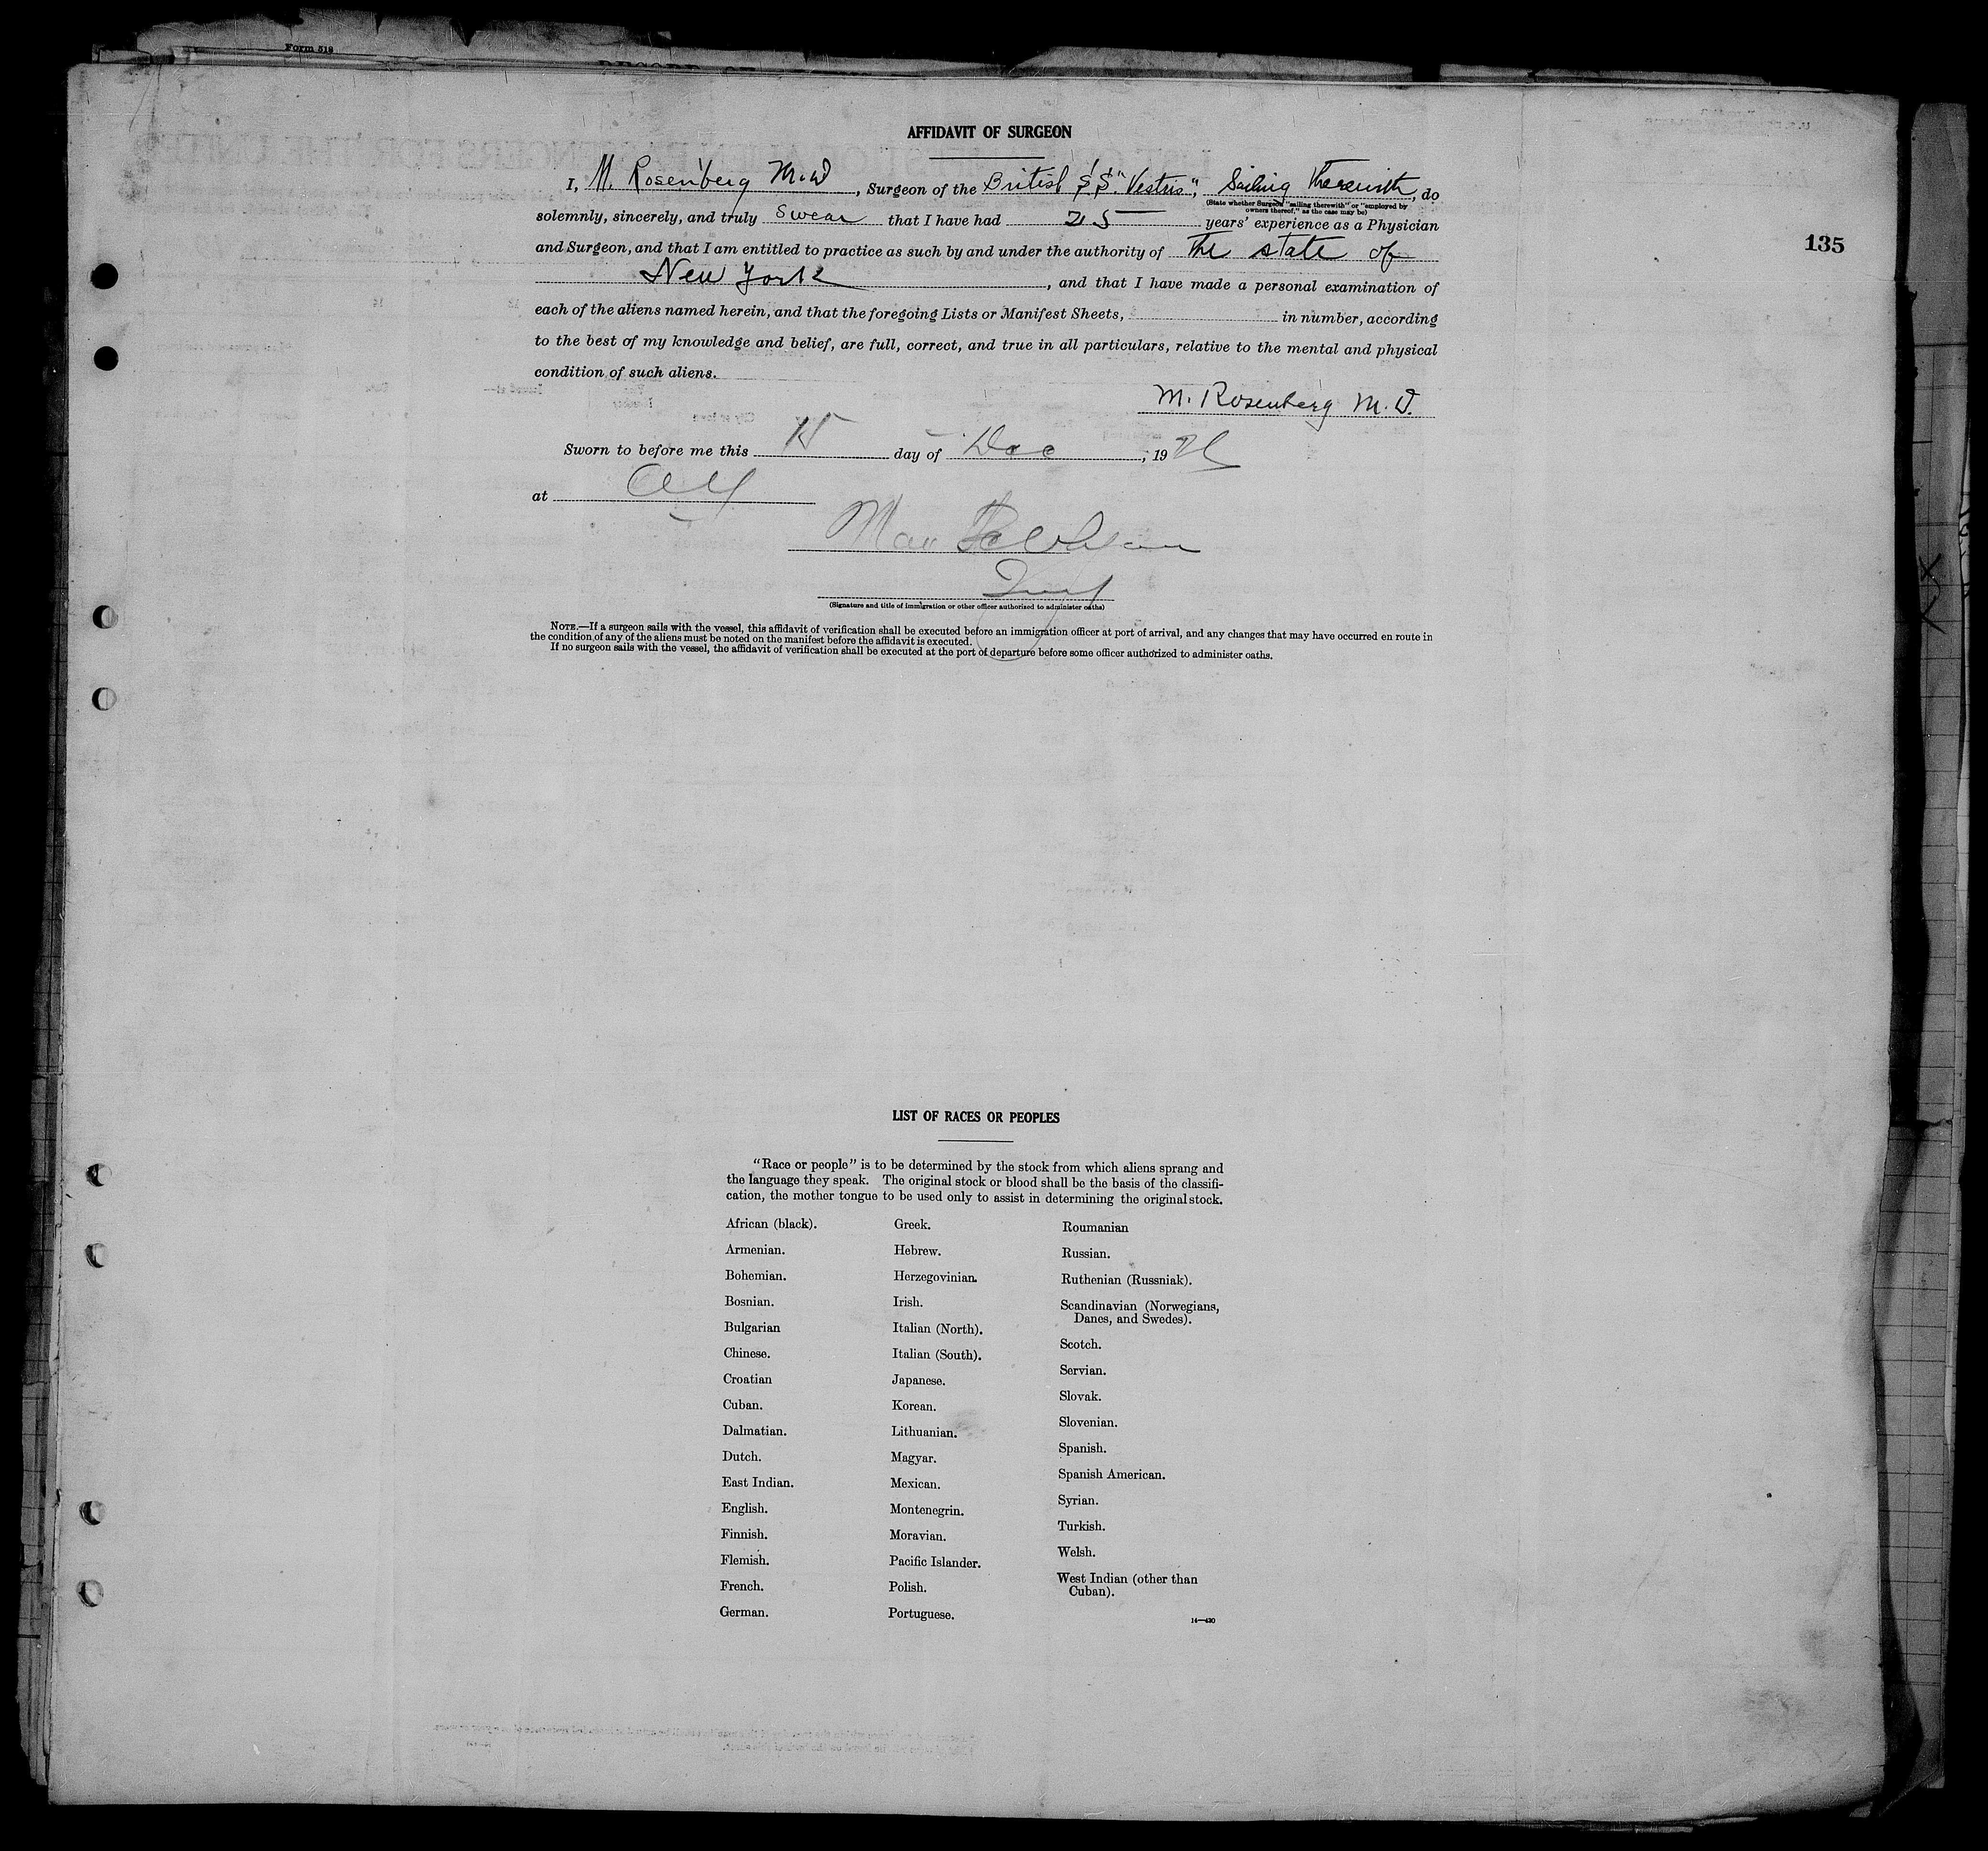 Form 518
AFFIDAVIT OF SURGEON
I, M. Rosenberg M.D, Surgeon of the British S.S. "Vestris", Sailing therewith, do
(State whether Surgeon "sailing therewith" or "employed by
owners thereof," as the case may be)
solemnly, sincerely, and truly swear that I have had 25 years' experience as a Physician
135
and Surgeon, and that I am entitled to practice as such by and under the authority of The state of
New York, and that I have made a personal examination of
each of the aliens named herein, and that the foregoing Lists or Manifest Sheets, in number, according
to the best of my knowledge and belief, are full, correct, and true in all particulars, relative to the mental and physical
condition of such aliens.
M. Rosenberg M.D.
Sworn to before me this 15 day of Dec, 19
at
Max
(Signature and title of immigration or other officer authorized to administer oaths)
NOTE.—If a surgeon sails with the vessel, this affidavit of verification shall be executed before an immigration officer at port of arrival, and any changes that may have occurred en route in
the condition of any of the aliens must be noted on the manifest before the affidavit is executed.
If no surgeon sails with the vessel, the affidavit of verification shall be executed at the port of departure before some officer authorized to administer oaths.
LIST OF RACES OR PEOPLES
"Race or people" is to be determined by the stock from which aliens sprang and
the language they speak. The original stock or blood shall be the basis of the classifi-
cation, the mother tongue to be used only to assist in determining the original stock.
African (black).
Armenian.
Bohemian.
Bosnian.
Bulgarian
Chinese.
Croatian
Cuban.
Dalmatian.
Dutch.
East Indian.
English.
Finnish.
Flemish.
French.
German.
Greek.
Hebrew.
Herzegovinian.
Irish.
Italian (North).
Italian (South).
Japanese.
Korean.
Lithuanian.
Magyar.
Mexican.
Montenegrin.
Moravian.
Pacific Islander.
Polish.
Portuguese.
Roumanian
Russian.
Ruthenian (Russniak).
Scandinavian (Norwegians,
Danes, and Swedes).
Scotch.
Servian.
Slovak.
Slovenian.
Spanish.
Spanish American.
Syrian.
Turkish.
Welsh.
West Indian (other than
Cuban).
14—430